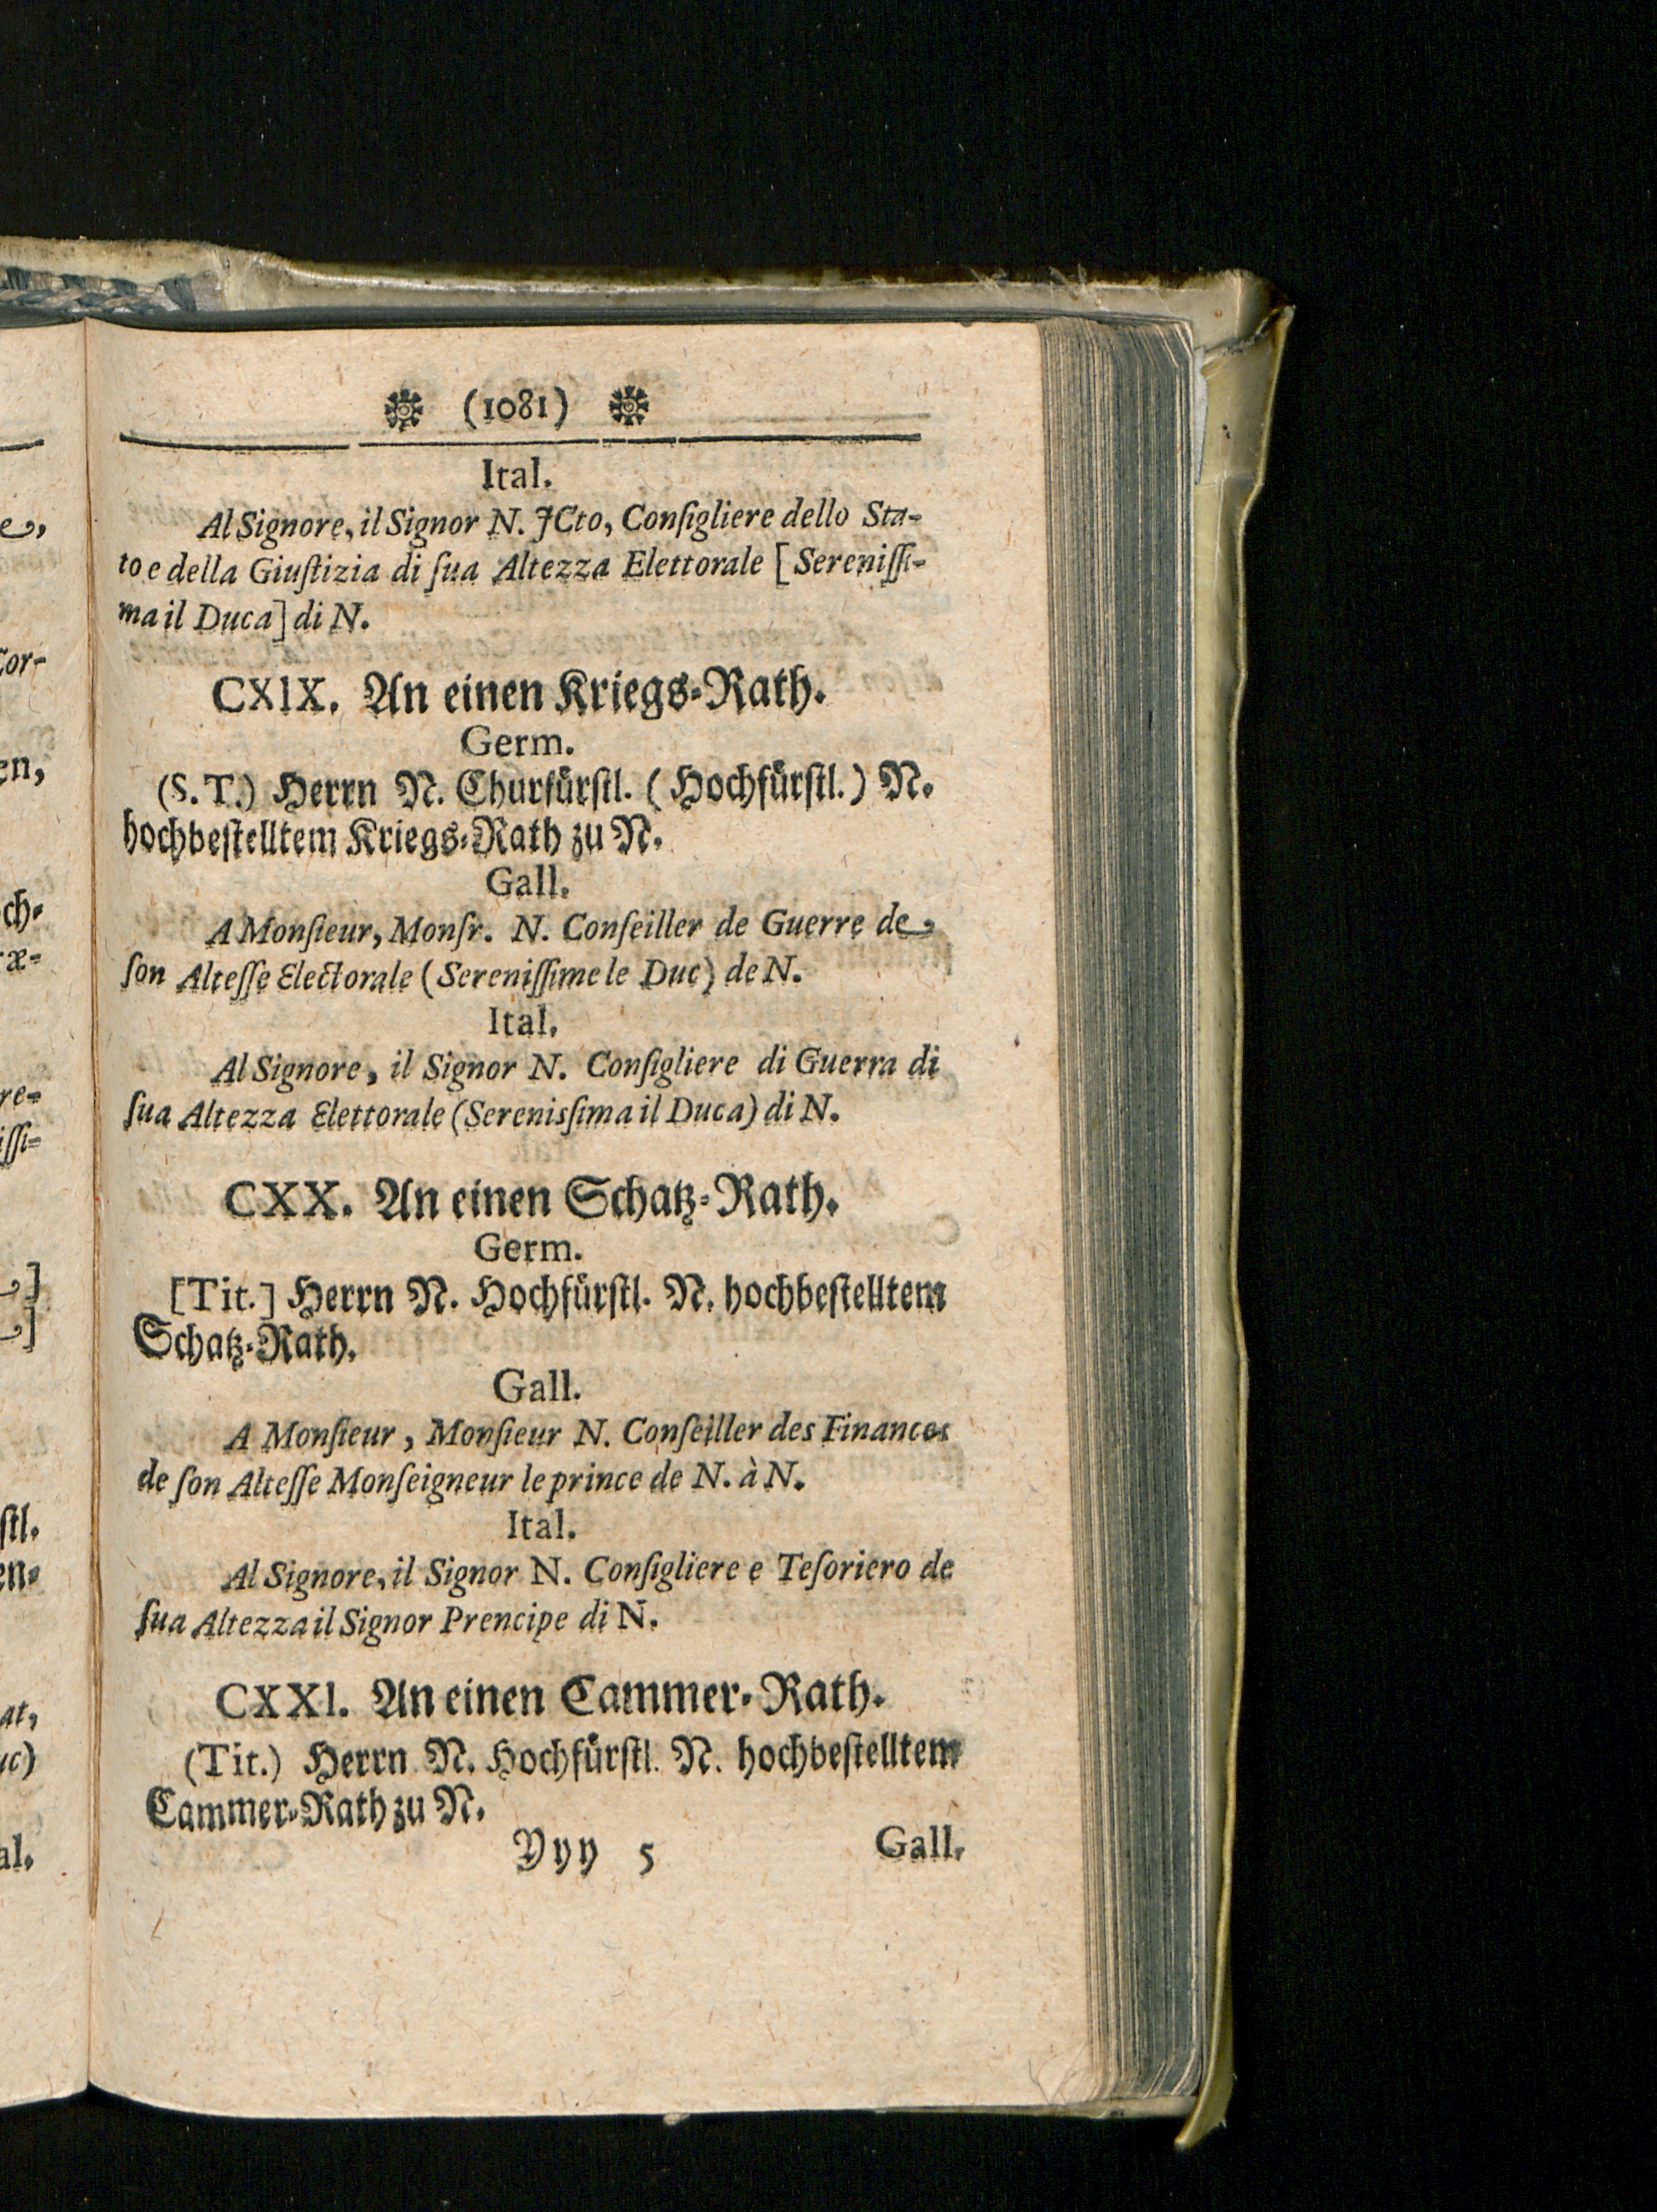 (1081)
Ital.
Al Signore, il Signor N. JCto, Conſigliere dello Sta-
to e della Giuſtizia di ſua Altezza Elettorale [Sereniſſi-
ma il Duca] di N.
CXIX. An einen Kriegs-Rath.
Germ.
(S. T.) Herrn N. Churfürſtl. (Hochfürſtl.) N.
hochbeſtelltem Kriegs-Rath zu N.
Gall.
A Monſieur, Monſr. N. Conſeiller de Guerre de
ſon Alteſſe Electorale (Sereniſſime le Duc) de N.
Ital.
Al Signore, il Signor N. Conſigliere di Guerra di
ſua Altezza Elettorale (Serenisſima il Duca) di N.
CXX. An einen Schatz-Rath.
Germ.
[Tit.] Herrn N. Hochfürſtl. N. hochbeſtelltem
Schatz-Rath.
Gall.
A Monſieur, Monſieur N. Conſeiller des Finances
de ſon Alteſſe Monſeigneur le prince de N. à N.
Ital.
Al Signore, il Signor N. Conſigliere e Teſoriero de
ſua Altezza il Signor Prencipe di N.
CXXI. An einen Cammer-Rath.
(Tit.) Herrn N. Hochfürſtl. N. hochbeſtelltem
Cammer-Rath zu N.
Yyy 5 Gall.